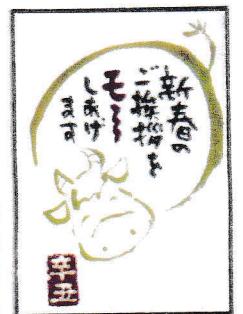 新春の
ご挨拶を
モ〜〜
しあげ
ます
辛丑